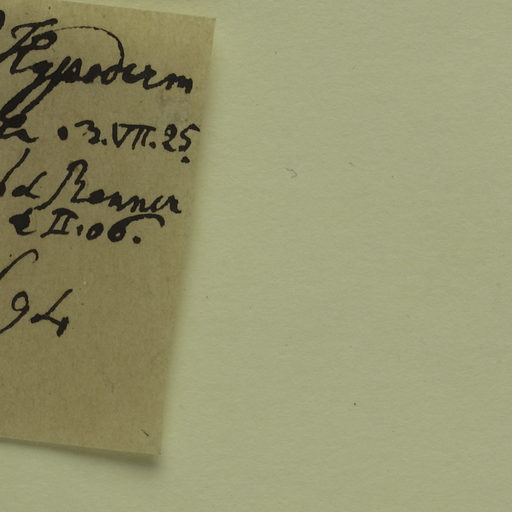 Hypoderm
3.VII.25
Renner
II.06.
94